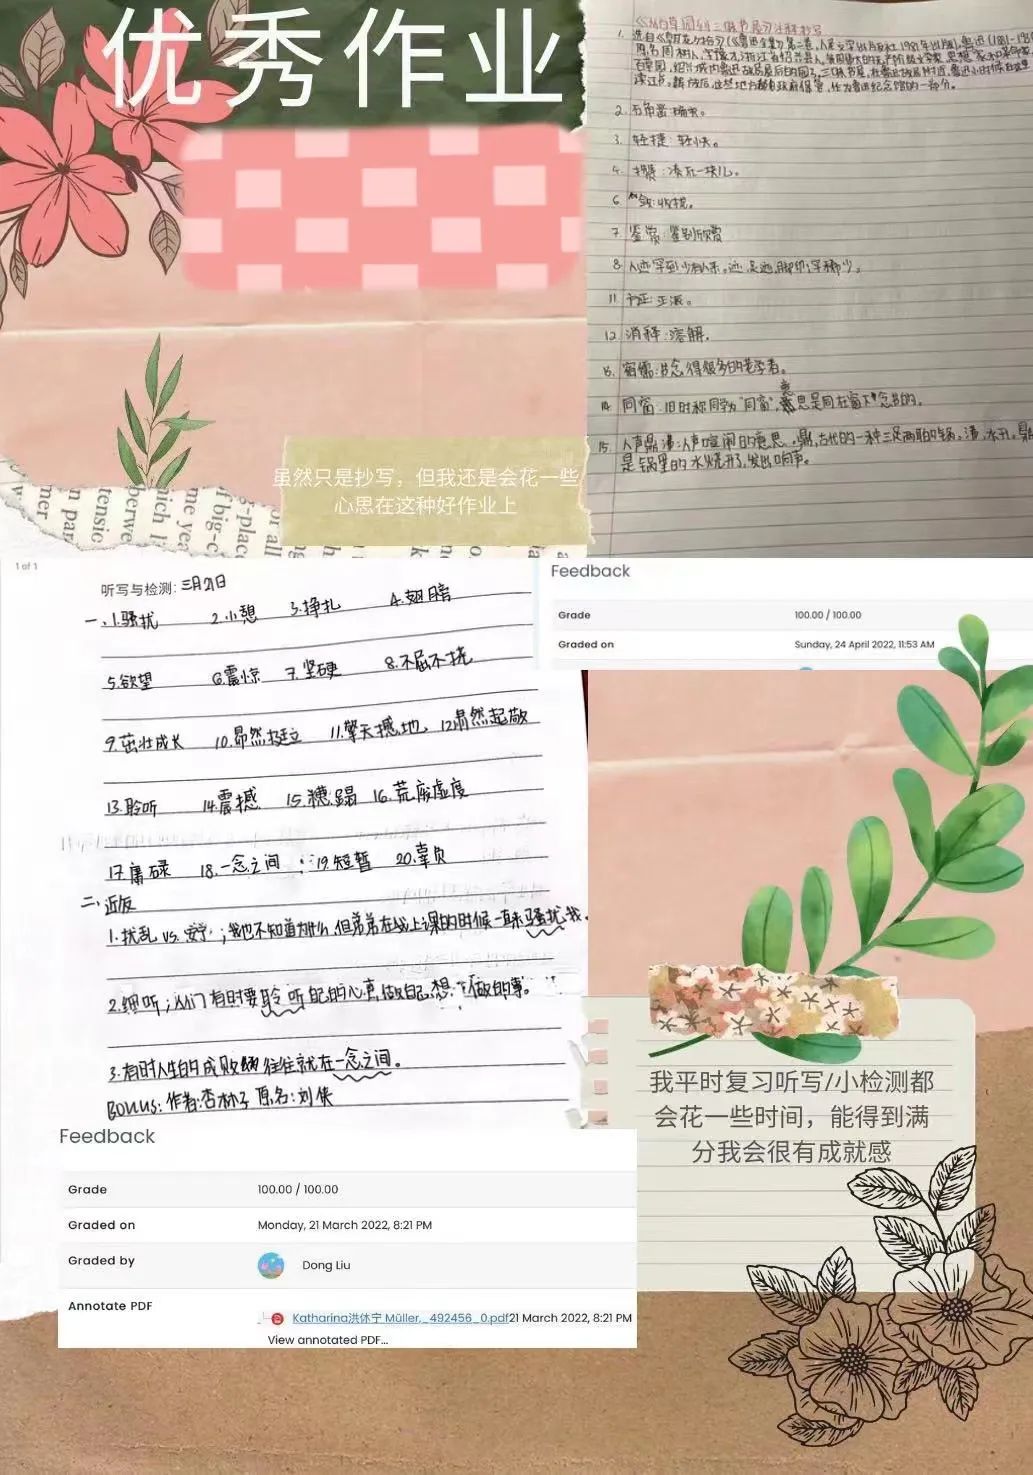 优秀作业
2.
3. 轻捷:轻快。
6
7 鉴赏:鉴别欣赏
8
11
12 消释:溶解。
14 同窗:旧时称同学为"同窗",意思是同在窗下念书的。
15.
是锅里的水烧开,发出响声。
虽然只是抄写,但我还是会花一些
心思在这种好作业上
1 of 1
听写与检测: 三月21日
一、1.骚扰 2.小憩 3.挣扎 4.翅膀
5.欲望 6.震惊 7.坚硬 8.不屈不挠
9.茁壮成长 10.昂然挺立 11.擎天撼地 12.肃然起敬
13.聆听 14.震撼 15.糟蹋 16.荒废虚度
17.庸碌 18.一念之间 19.短暂 20.辜负
二、近反
1.扰乱 vs. 安宁;我也不知道为什么,但弟弟在线上课的时候一直来骚扰我。
2.倾听;人们有时要聆听自己的心声,做自己想做的事。
3.有时人生的成败往往就在一念之间。
BONUS: 作者:杏林子 原名:刘侠
Feedback
Grade 100.00 / 100.00
Graded on Sunday, 24 April 2022, 11:53 AM
我平时复习听写/小检测都
会花一些时间,能得到满
分我会很有成就感
Feedback
Grade 100.00 / 100.00
Graded on Monday, 21 March 2022, 8:21 PM
Graded by Dong Liu
Annotate PDF
Katharina洪休宁 Müller,_492456_0.pdf21 March 2022, 8:21 PM
View annotated PDF...